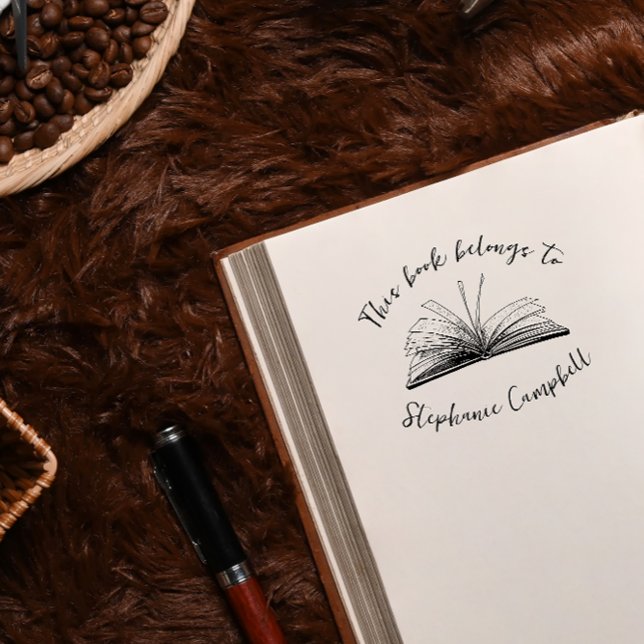 This book belongs to
Stephanie Campbell